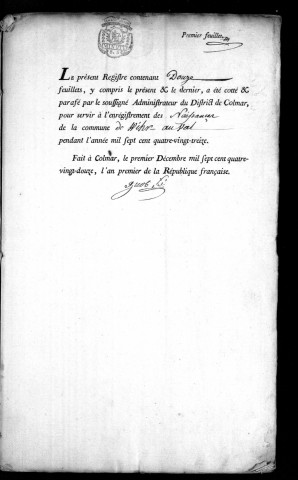 Premier feuillet
LE présent Registre contenant Douze
feuillets, y compris le présent & le dernier, a été cotté &
parafé par le soussigné Administrateur du District de Colmar,
pour servir à l'enrégistrement des Naissances
de la commune de Wihr au Val
pendant l'année mil sept cent quatre-vingt-treize.
Fait à Colmar, le premier Décembre mil sept cent quatre-
vingt-douze, l'an premier de la République françaife.